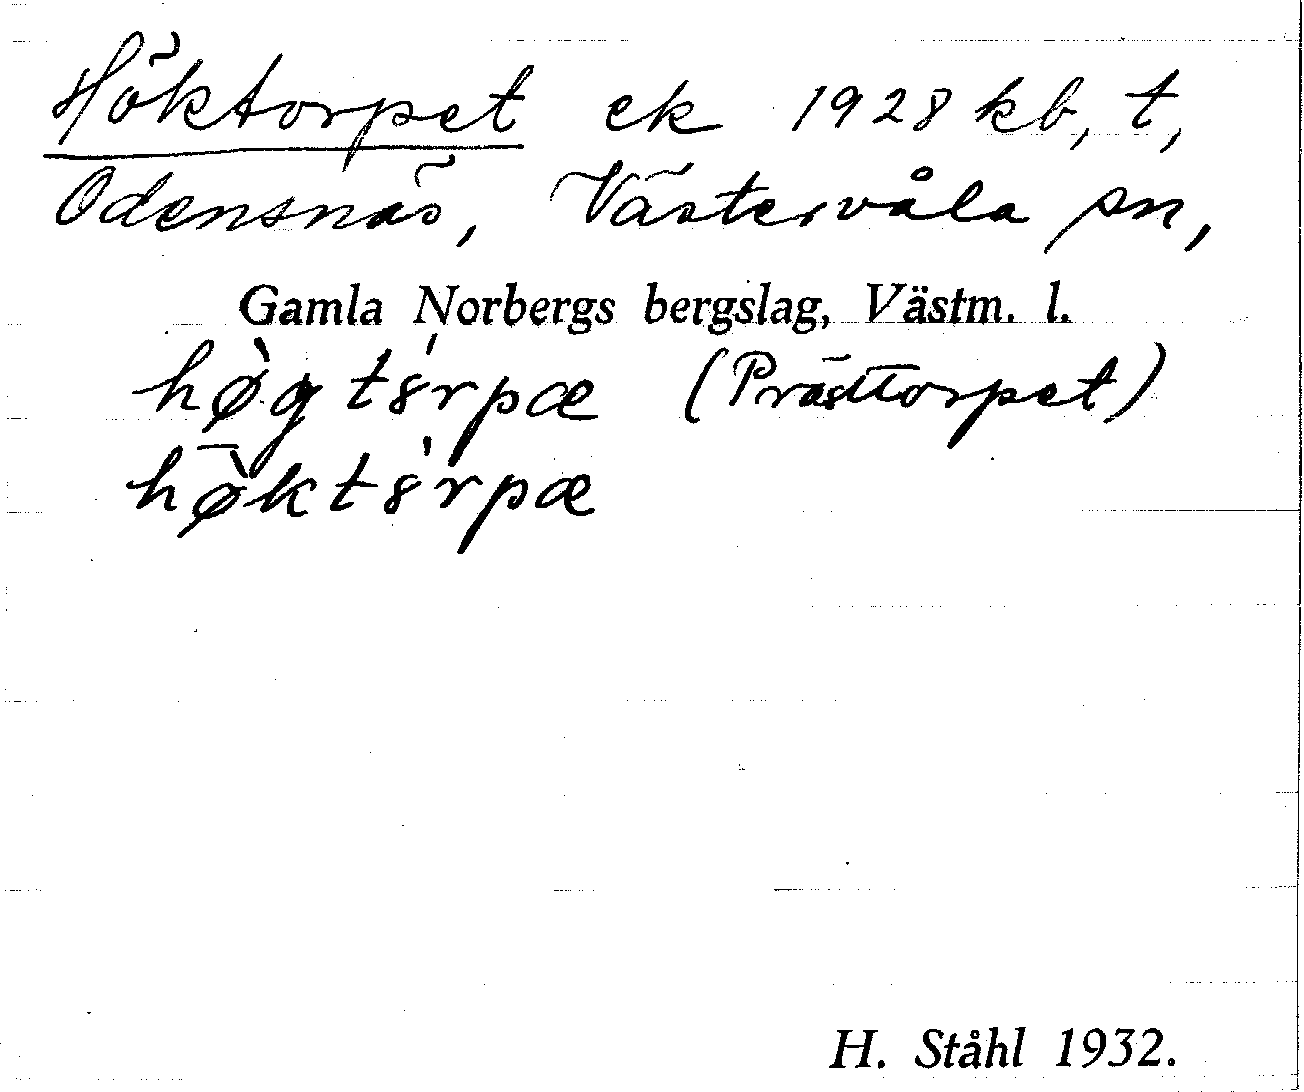 Höktorpet ek 1928 kb, t,
Odensnäs, Västervåla sn,
Gamla Norbergs bergslag, Västm. l.
hø̀gtórpæ (Prästtorpet)
hø̀którpæ
H. Ståhl 1932.